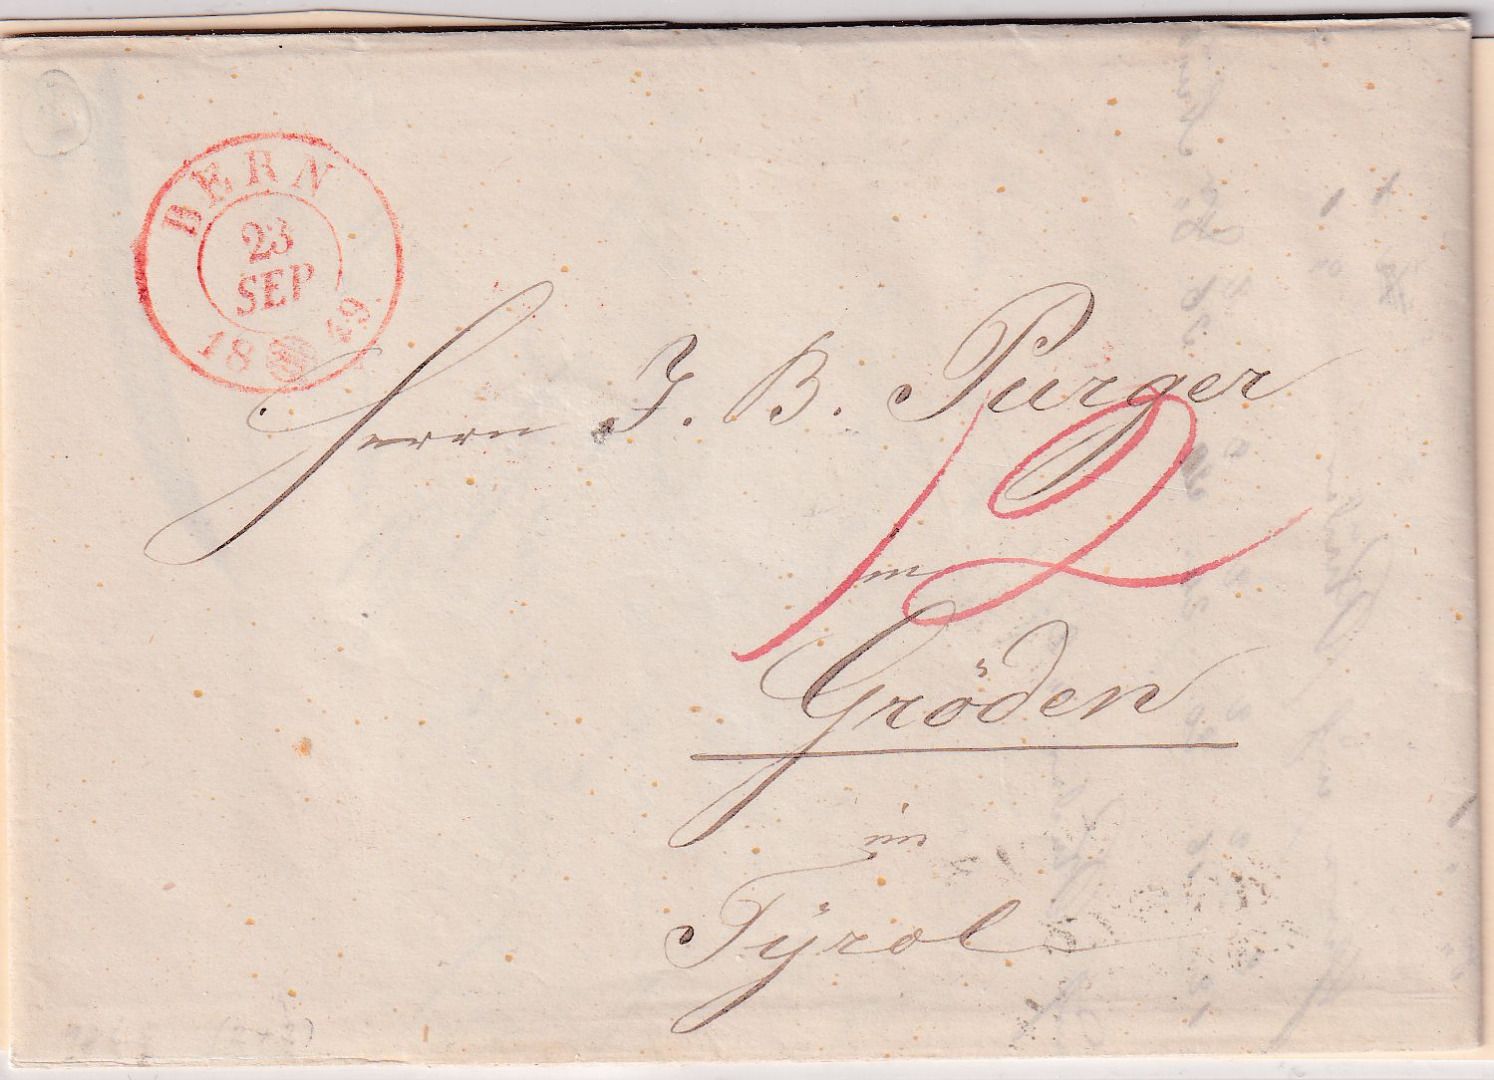 BERN
23
SEP
18 49
Herrn J. B. Purger
12
in
Gröden
im
Tÿrol